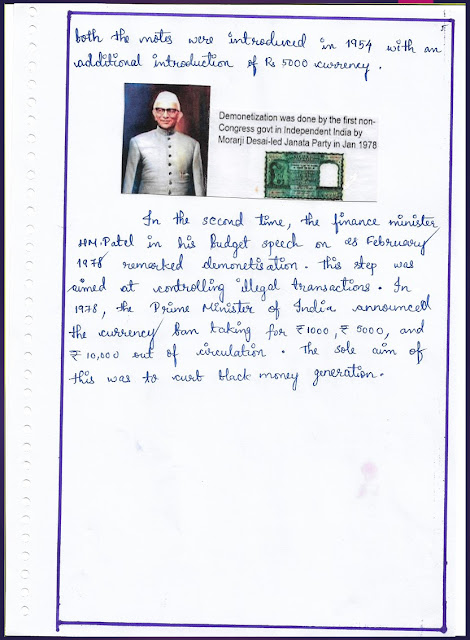 both the notes were introduced in 1954 with an
additional introduction of Rs 5000 currency.
Demonetization was done by the first non-
Congress govt in Independent India by
Morarji Desai-led Janata Party in Jan 1978
In the second time, the finance minister
HM. Patel in his Budget speech on 28 February
1978 remarked demonetisation. This step was
aimed at controlling illegal transactions. In
1978, the Prime Minister of India announced
the currency ban taking for ₹1000, ₹ 5000, and
₹ 10,000 out of circulation. The sole aim of
this was to curb black money generation.